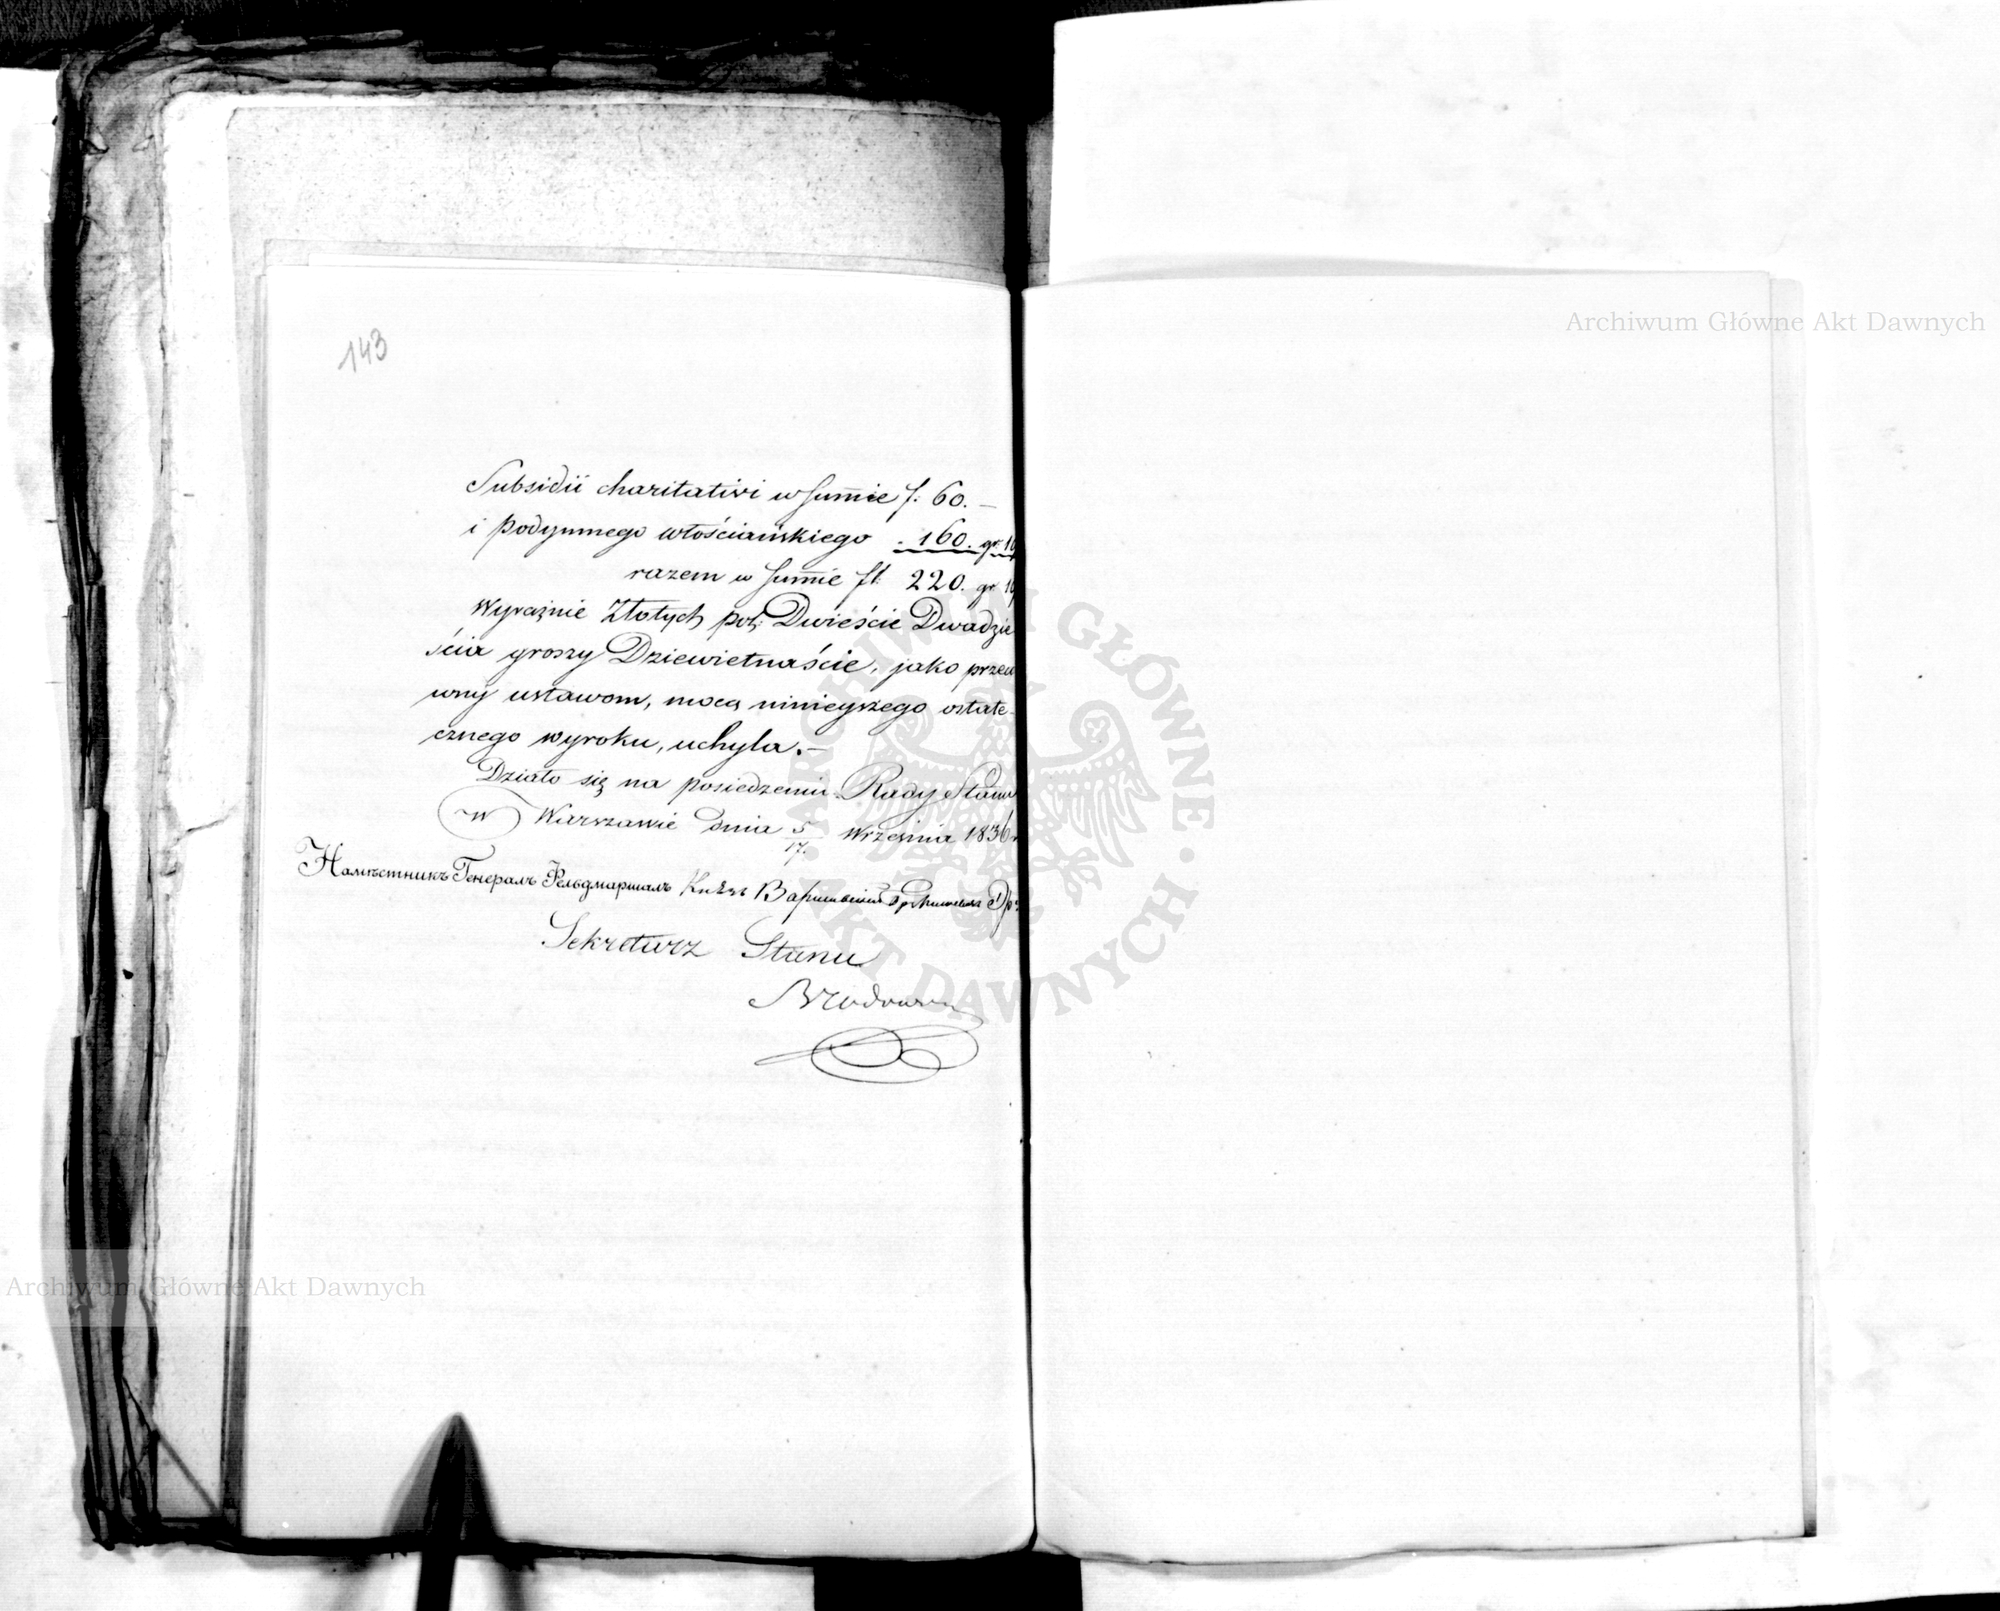 143
Subsidii charitativi w summie f. 60. —
i podymnego włościańskiego . 160. gr. 19
razem w summie fl. 220. gr 19
Wyraźnie Złotych pol: Dwieście Dwadzie
ścia groszy Dziewietnaście, jako przeci
wny ustawom, mocą ninieyszego ostate-
cznego wyroku, uchyla. —
Działo się na posiedzeniu Rady Stanu
w Warszawie dnia 5/17. Września 1836 r
Намѣстникъ Генералъ Фельдмаршалъ Князь Варшавскій
Sekretarz Stanu
Archiwum Główne Akt Dawnych
Archiwum Główne Akt Dawnych
ARCHIWUM GŁÓWNE · AKT DAWNYCH ·